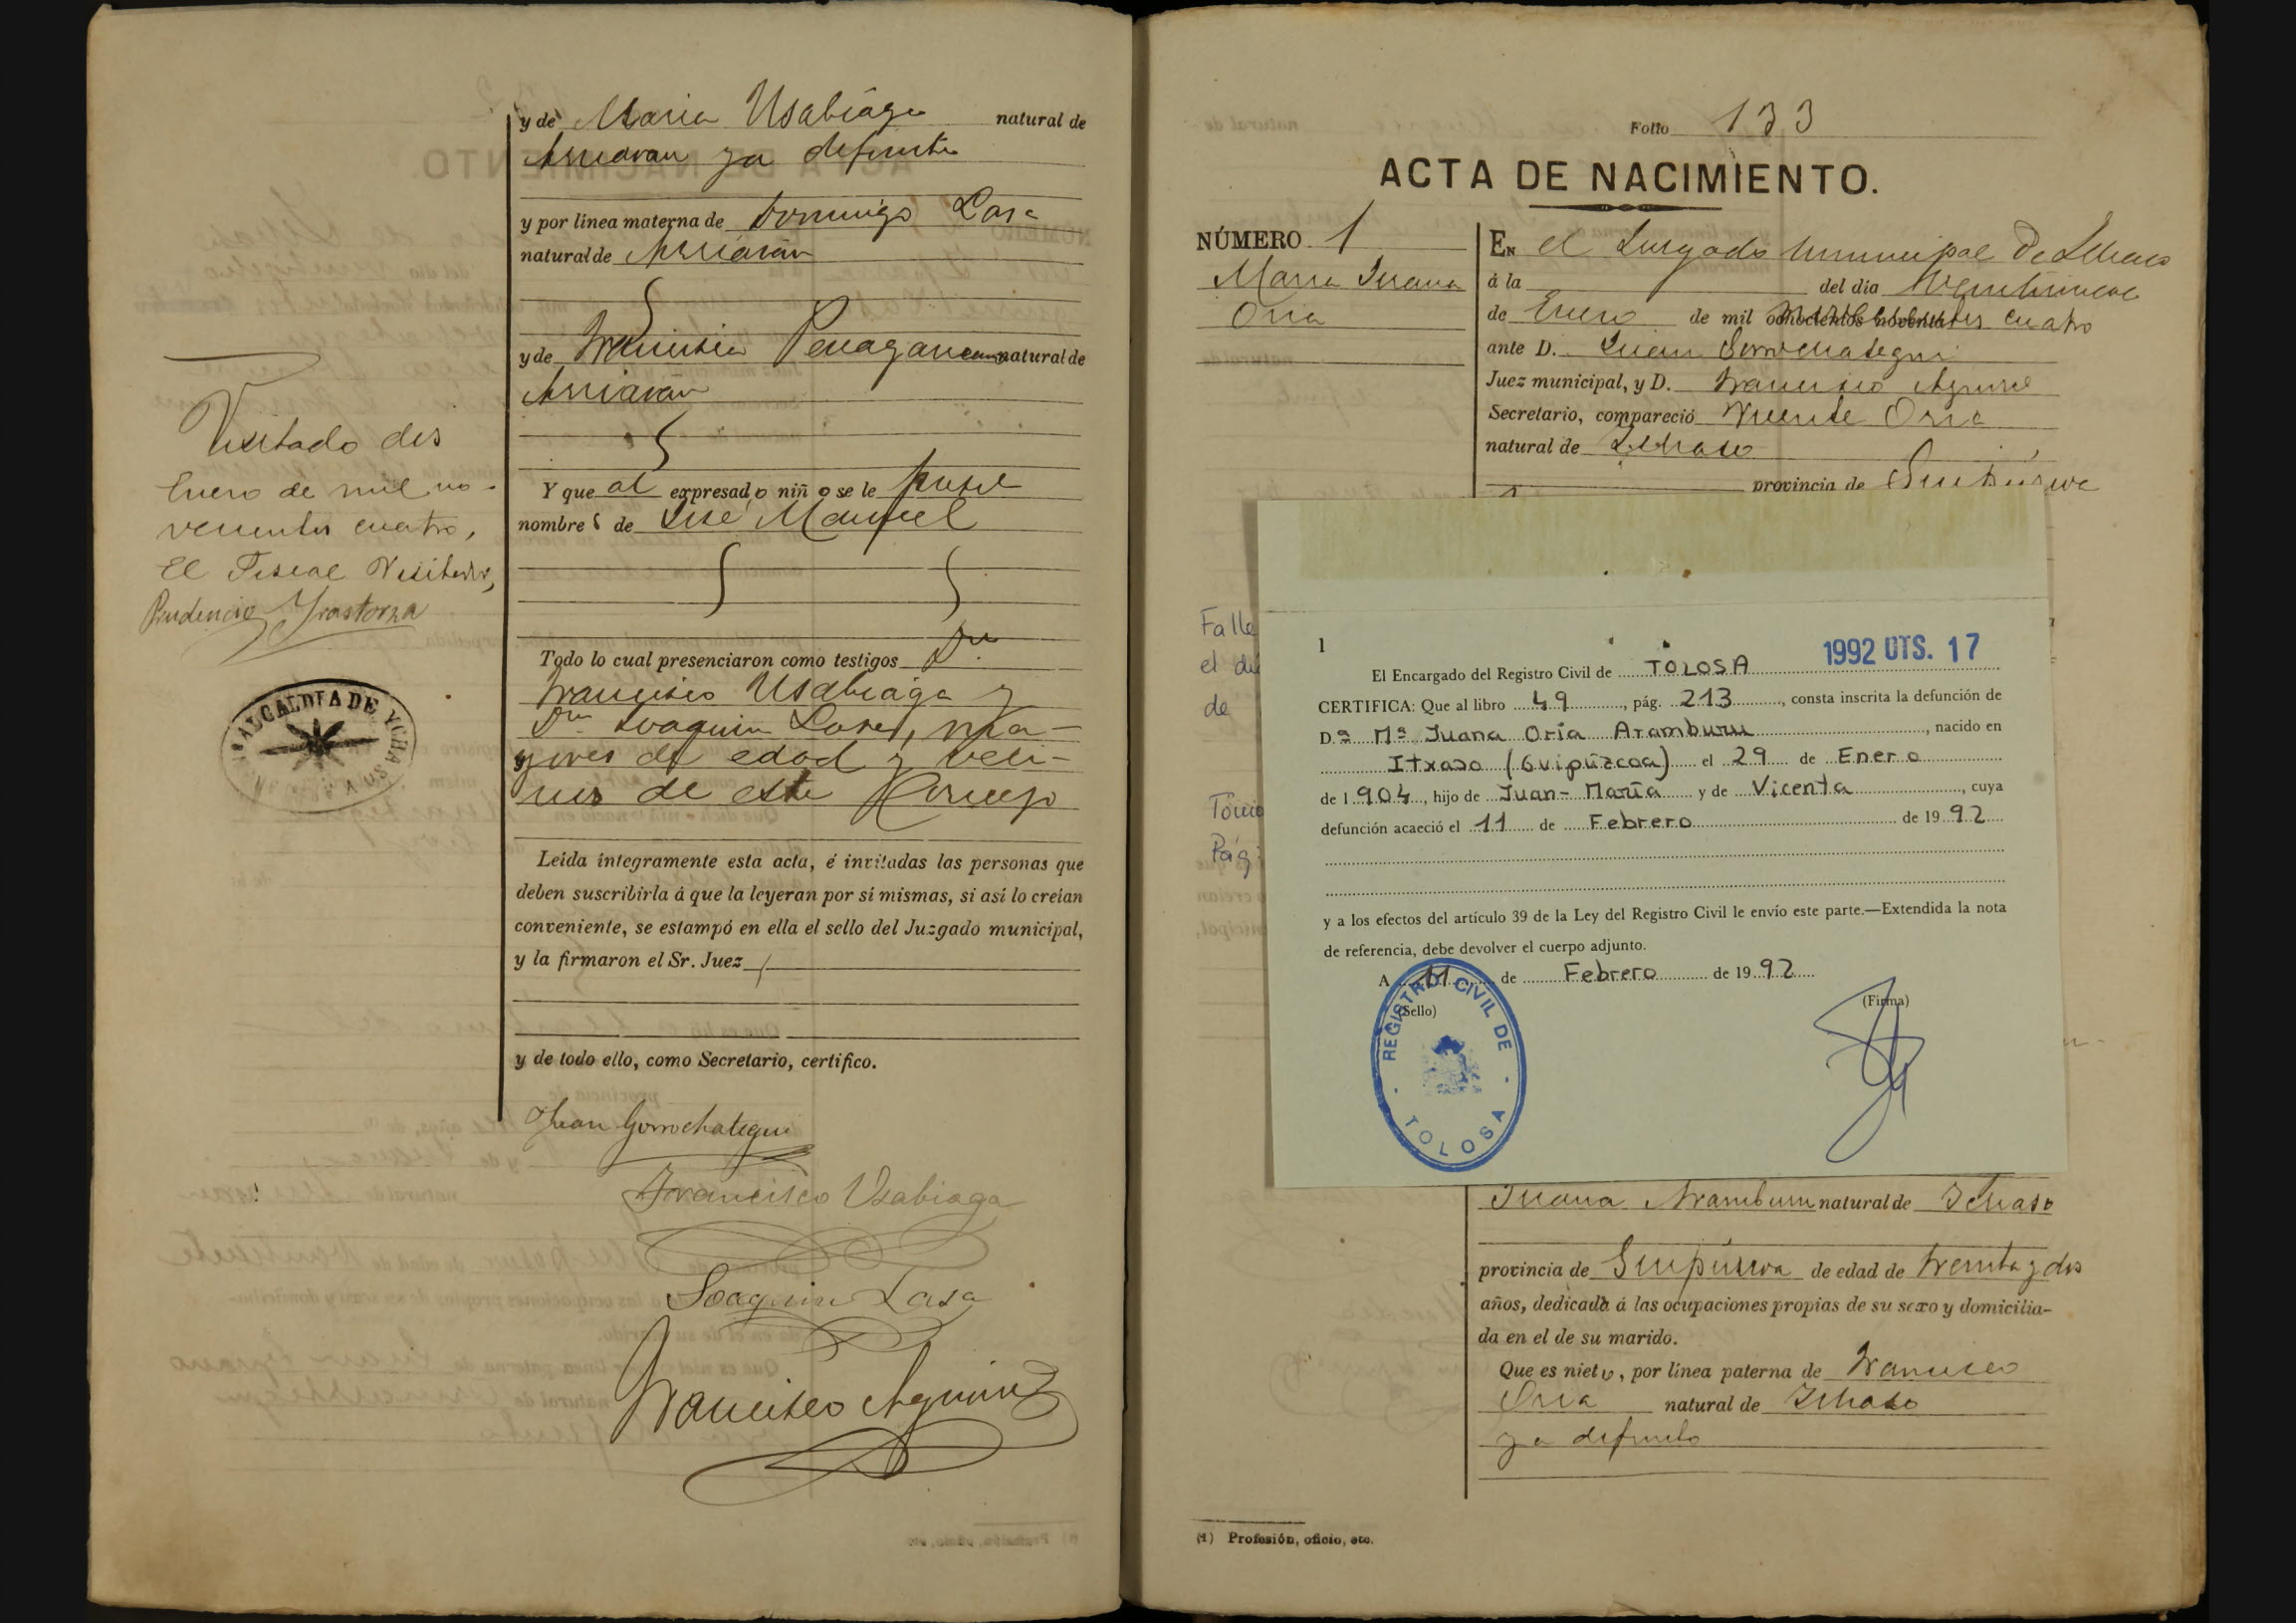 y de Maria Usabiaga natural de
Arriaran ya difunta
y por línea materna de Domingo Lasa
natural de Arriaran
y de Francisca natural de
Arriaran
Y que al expresado niño se le puso
nombres de José Manuel
Todo lo cual presenciaron como testigos Dn
Francisco Usabiaga y
Dn Joaquin Lasa, ma-
yores de edad y veci-
nos de este Concejo
Leída íntegramente esta acta, é invitadas las personas que
deben suscribirla á que la leyeran por sí mismas, si así lo creían
conveniente, se estampó en ella el sello del Juzgado municipal,
y la firmaron el Sr. Juez
y de todo ello, como Secretario, certifico.
Juan Gorrochategui
Francisco Usabiaga
Joaquin Lasa
Francisco Aguirre
Visitado dos
Enero de mil no-
vecientos cuatro,
El Fiscal Visitador,
Prudencio Yrastorza
ALCALDIA DE YCHASO
Folio 133
ACTA DE NACIMIENTO.
NÚMERO 1
Maria Juana
Oria
En el Juzgado municipal de Ichaso
á la del día Veintinueve
de Enero de mil novecientos cuatro
ante D. Juan Gorrochategui
Juez municipal, y D. Francisco Aguirre
Secretario, compareció Vicente Oria
natural de Ichaso
provincia de Guipúzcoa
Falle
el día
de
Tomo
Pág:
1
1992 OTS. 17
El Encargado del Registro Civil de TOLOSA
CERTIFICA: Que al libro 49, pág. 213, consta inscrita la defunción de
Dª Mª Juana Oria Aramburu, nacido en
Itxaso (Guipúzcoa) el 29 de Enero
de 1.904, hijo de Juan-María y de Vicenta, cuya
defunción acaeció el 11 de Febrero de 1992
y a los efectos del artículo 39 de la Ley del Registro Civil le envío este parte.—Extendida la nota
de referencia, debe devolver el cuerpo adjunto.
A 11 de Febrero de 1992
(Sello)
(Firma)
REGISTRO CIVIL DE
TOLOSA
Juana Aramburu natural de Ichaso
provincia de Guipúzcoa de edad de treinta y dos
años, dedicada á las ocupaciones propias de su sexo y domicilia-
da en el de su marido.
Que es nieto, por línea paterna de Francisco
Oria natural de Ichaso
ya difunto
(1) Profesión, oficio, etc.